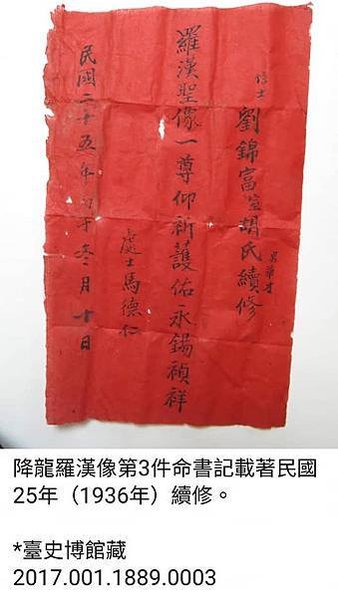 信士 劉錦富室胡氏續修
羅漢聖像一尊仰祈護佑永錫禎祥
處士馬德仁
民國二十五年丙子冬月十日
降龍羅漢像第3件命書記載著民國
25年（1936年）續修。
*臺史博館藏
2017.001.1889.0003